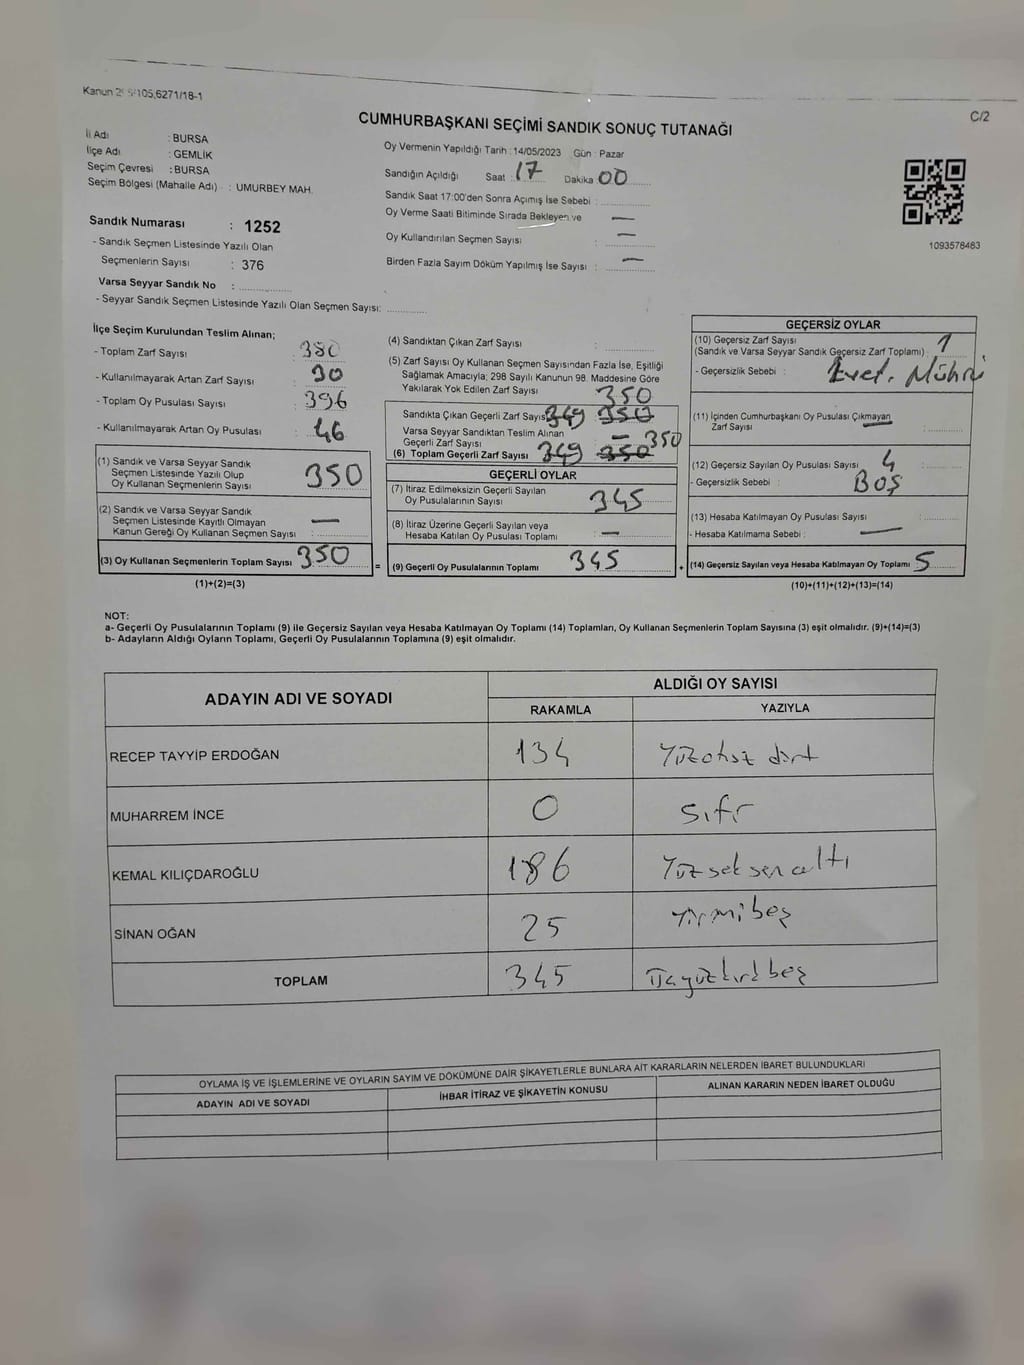 C/2
CUMHURBAŞKANI SEÇİMİ SANDIK SONUÇ TUTANAĞI
İl Adı : BURSA
İlçe Adı : GEMLİK
Seçim Çevresi : BURSA
Seçim Bölgesi (Mahalle Adı) : UMURBEY MAH.
Sandık Numarası : 1252
- Sandık Seçmen Listesinde Yazılı Olan
Seçmenlerin Sayısı : 376
Varsa Seyyar Sandık No :
- Seyyar Sandık Seçmen Listesinde Yazılı Olan Seçmen Sayısı:
Oy Vermenin Yapıldığı Tarih : 14/05/2023 Gün : Pazar
Sandığın Açıldığı Saat : 17 Dakika 00
Sandık Saat 17:00'den Sonra Açımış İse Sebebi :
Oy Verme Saati Bitiminde Sırada Bekleyen ve —
Oy Kullandırılan Seçmen Sayısı : —
Birden Fazla Sayım Döküm Yapılmış İse Sayısı : —
1093578483
İlçe Seçim Kurulundan Teslim Alınan;
- Toplam Zarf Sayısı : 380
- Kullanılmayarak Artan Zarf Sayısı : 30
- Toplam Oy Pusulası Sayısı : 396
- Kullanılmayarak Artan Oy Pusulası : 46
(1) Sandık ve Varsa Seyyar Sandık
Seçmen Listesinde Yazılı Olup
Oy Kullanan Seçmenlerin Sayısı 350
(2) Sandık ve Varsa Seyyar Sandık
Seçmen Listesinde Kayıtlı Olmayan
Kanun Gereği Oy Kullanan Seçmen Sayısı : —
(3) Oy Kullanan Seçmenlerin Toplam Sayısı 350
(1)+(2)=(3)
(4) Sandıktan Çıkan Zarf Sayısı :
(5) Zarf Sayısı Oy Kullanan Seçmen Sayısından Fazla İse, Eşitliği
Sağlamak Amacıyla; 298 Sayılı Kanunun 98. Maddesine Göre
Yakılarak Yok Edilen Zarf Sayısı 350
Sandıkta Çıkan Geçerli Zarf Sayısı 349 350
Varsa Seyyar Sandıktan Teslim Alınan
Geçerli Zarf Sayısı : — 350
(6) Toplam Geçerli Zarf Sayısı 349 350
GEÇERLİ OYLAR
(7) İtiraz Edilmeksizin Geçerli Sayılan
Oy Pusulalarının Sayısı 345
(8) İtiraz Üzerine Geçerli Sayılan veya
Hesaba Katılan Oy Pusulası Toplamı : —
= (9) Geçerli Oy Pusulalarının Toplamı 345
GEÇERSİZ OYLAR
(10) Geçersiz Zarf Sayısı
(Sandık ve Varsa Seyyar Sandık Geçersiz Zarf Toplamı) : 1
- Geçersizlik Sebebi : Evet. Mührü
(11) İçinden Cumhurbaşkanı Oy Pusulası Çıkmayan
Zarf Sayısı — :
(12) Geçersiz Sayılan Oy Pusulası Sayısı 4
- Geçersizlik Sebebi : BOŞ
(13) Hesaba Katılmayan Oy Pusulası Sayısı :
- Hesaba Katılmama Sebebi : —
+ (14) Geçersiz Sayılan veya Hesaba Katılmayan Oy Toplamı 5
(10)+(11)+(12)+(13)=(14)
NOT:
a- Geçerli Oy Pusulalarının Toplamı (9) ile Geçersiz Sayılan veya Hesaba Katılmayan Oy Toplamı (14) Toplamları, Oy Kullanan Seçmenlerin Toplam Sayısına (3) eşit olmalıdır. (9)+(14)=(3)
b- Adayların Aldığı Oyların Toplamı, Geçerli Oy Pusulalarının Toplamına (9) eşit olmalıdır.
ADAYIN ADI VE SOYADI ALDIĞI OY SAYISI
RAKAMLA YAZIYLA
RECEP TAYYİP ERDOĞAN 134 Yüzotuz dört
MUHARREM İNCE 0 Sıfır
KEMAL KILIÇDAROĞLU 186 Yüz seksen altı
SİNAN OĞAN 25 Yirmi beş
TOPLAM 345 Üçyüzkırk beş
OYLAMA İŞ VE İŞLEMLERİNE VE OYLARIN SAYIM VE DÖKÜMÜNE DAİR ŞİKAYETLERLE BUNLARA AİT KARARLARIN NELERDEN İBARET BULUNDUKLARI
ADAYIN ADI VE SOYADI İHBAR İTİRAZ VE ŞİKAYETİN KONUSU ALINAN KARARIN NEDEN İBARET OLDUĞU